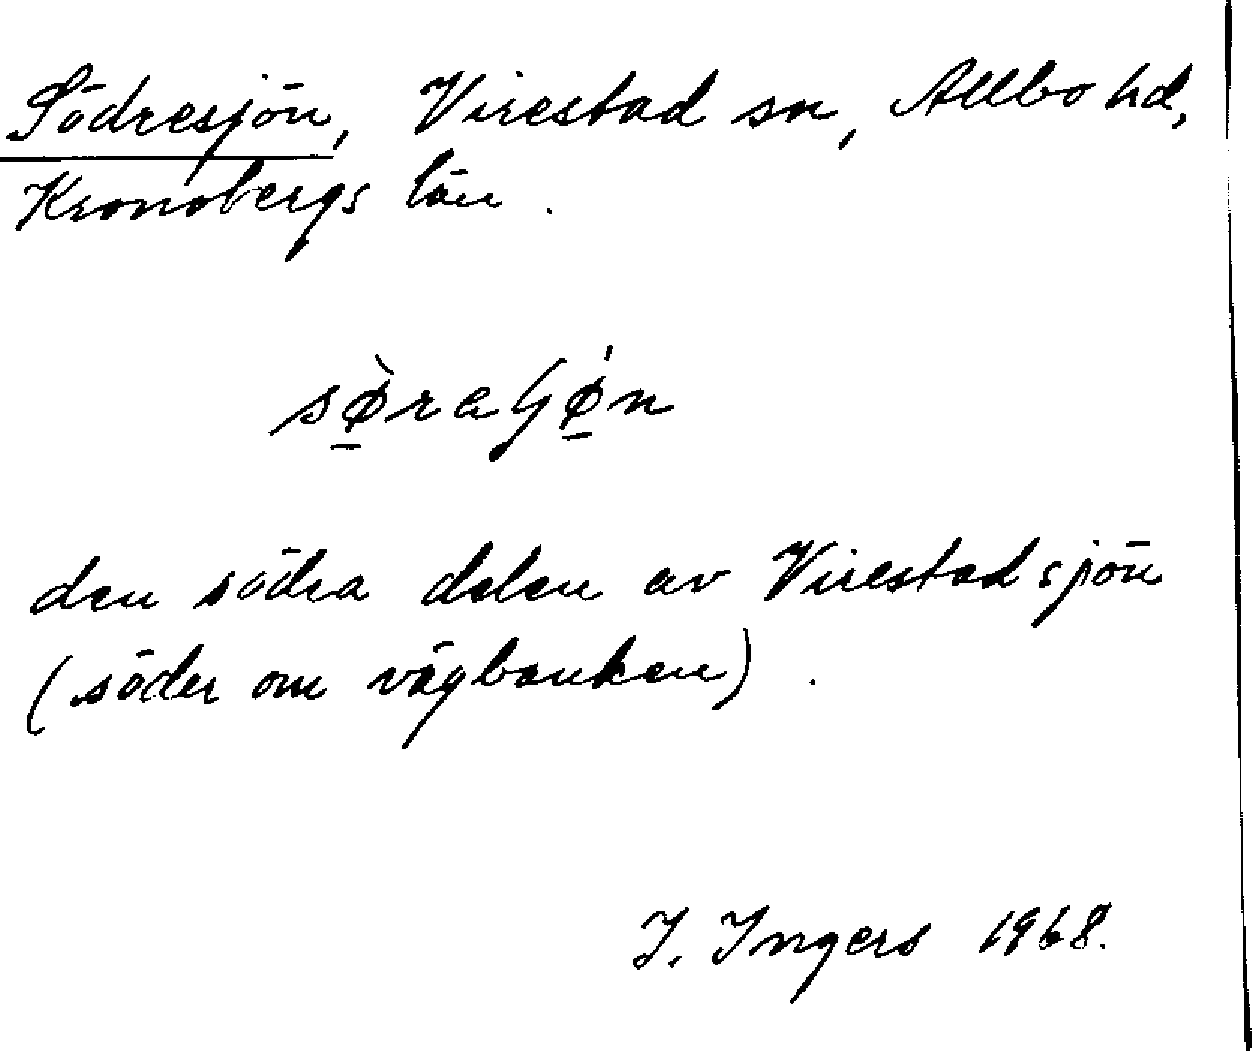 Södresjön, Virestad sn, Allbo hd,
Kronobergs län.
sø̱̀raʃǿ̱n
den södra delen av Virestadsjön
(söder om vägbanken).
I. Ingers 1968.